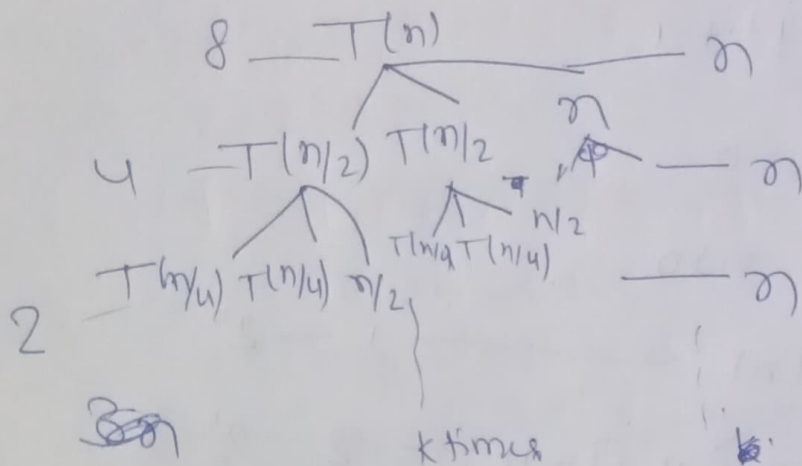 8 T(n) n
n
4 T(n/2) T(n/2 n
n/2
T(n/4 T(n/4)
T(n/4) T(n/4) n/2 n
2
k times